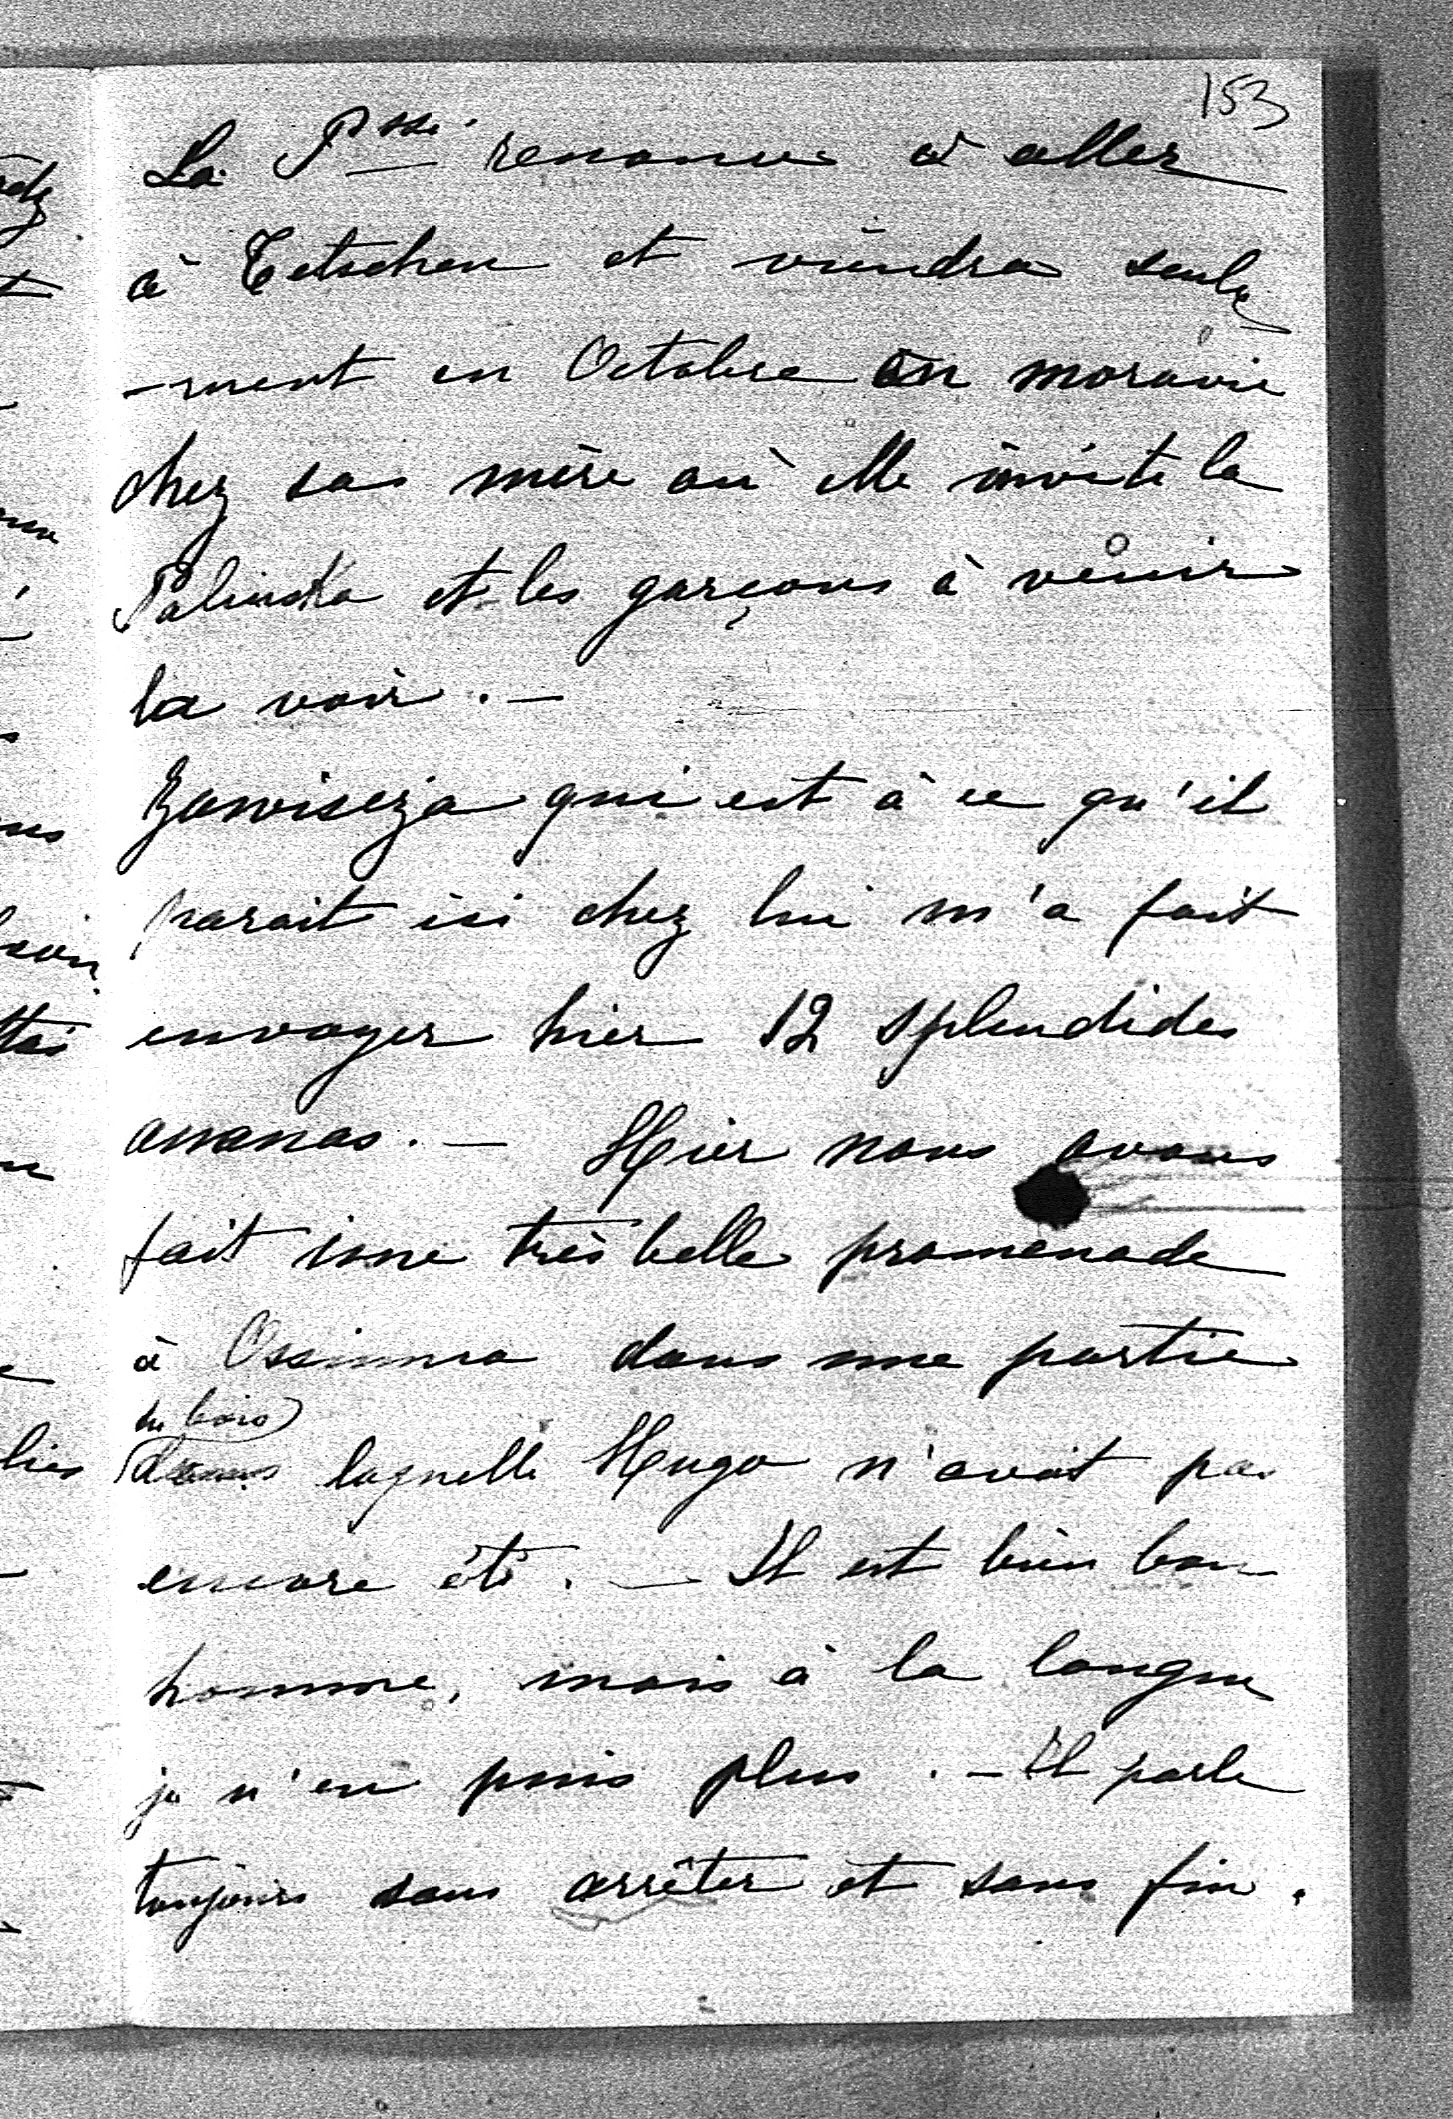 153
La Psse renonce à aller
à Tetschen et viendra seule
-ment en Octobre en moravie
chez sa mère où elle invite la
Palinska et les garçons à venir
la voir. —
Zawiszja qui est à ce qu'il
parait ici chez lui m'a fait
envoyer hier 12 splendides
ananas. — Hier nous avons
fait une très belle promenade
à Ossinnia dans une partie
du bois
dans laquelle Hugo n'avait pas
encore été. — Il est bien bon
homme, mais à la longue
je n'en puis plus. — Il parle
toujours sans arrêter et sans fin.